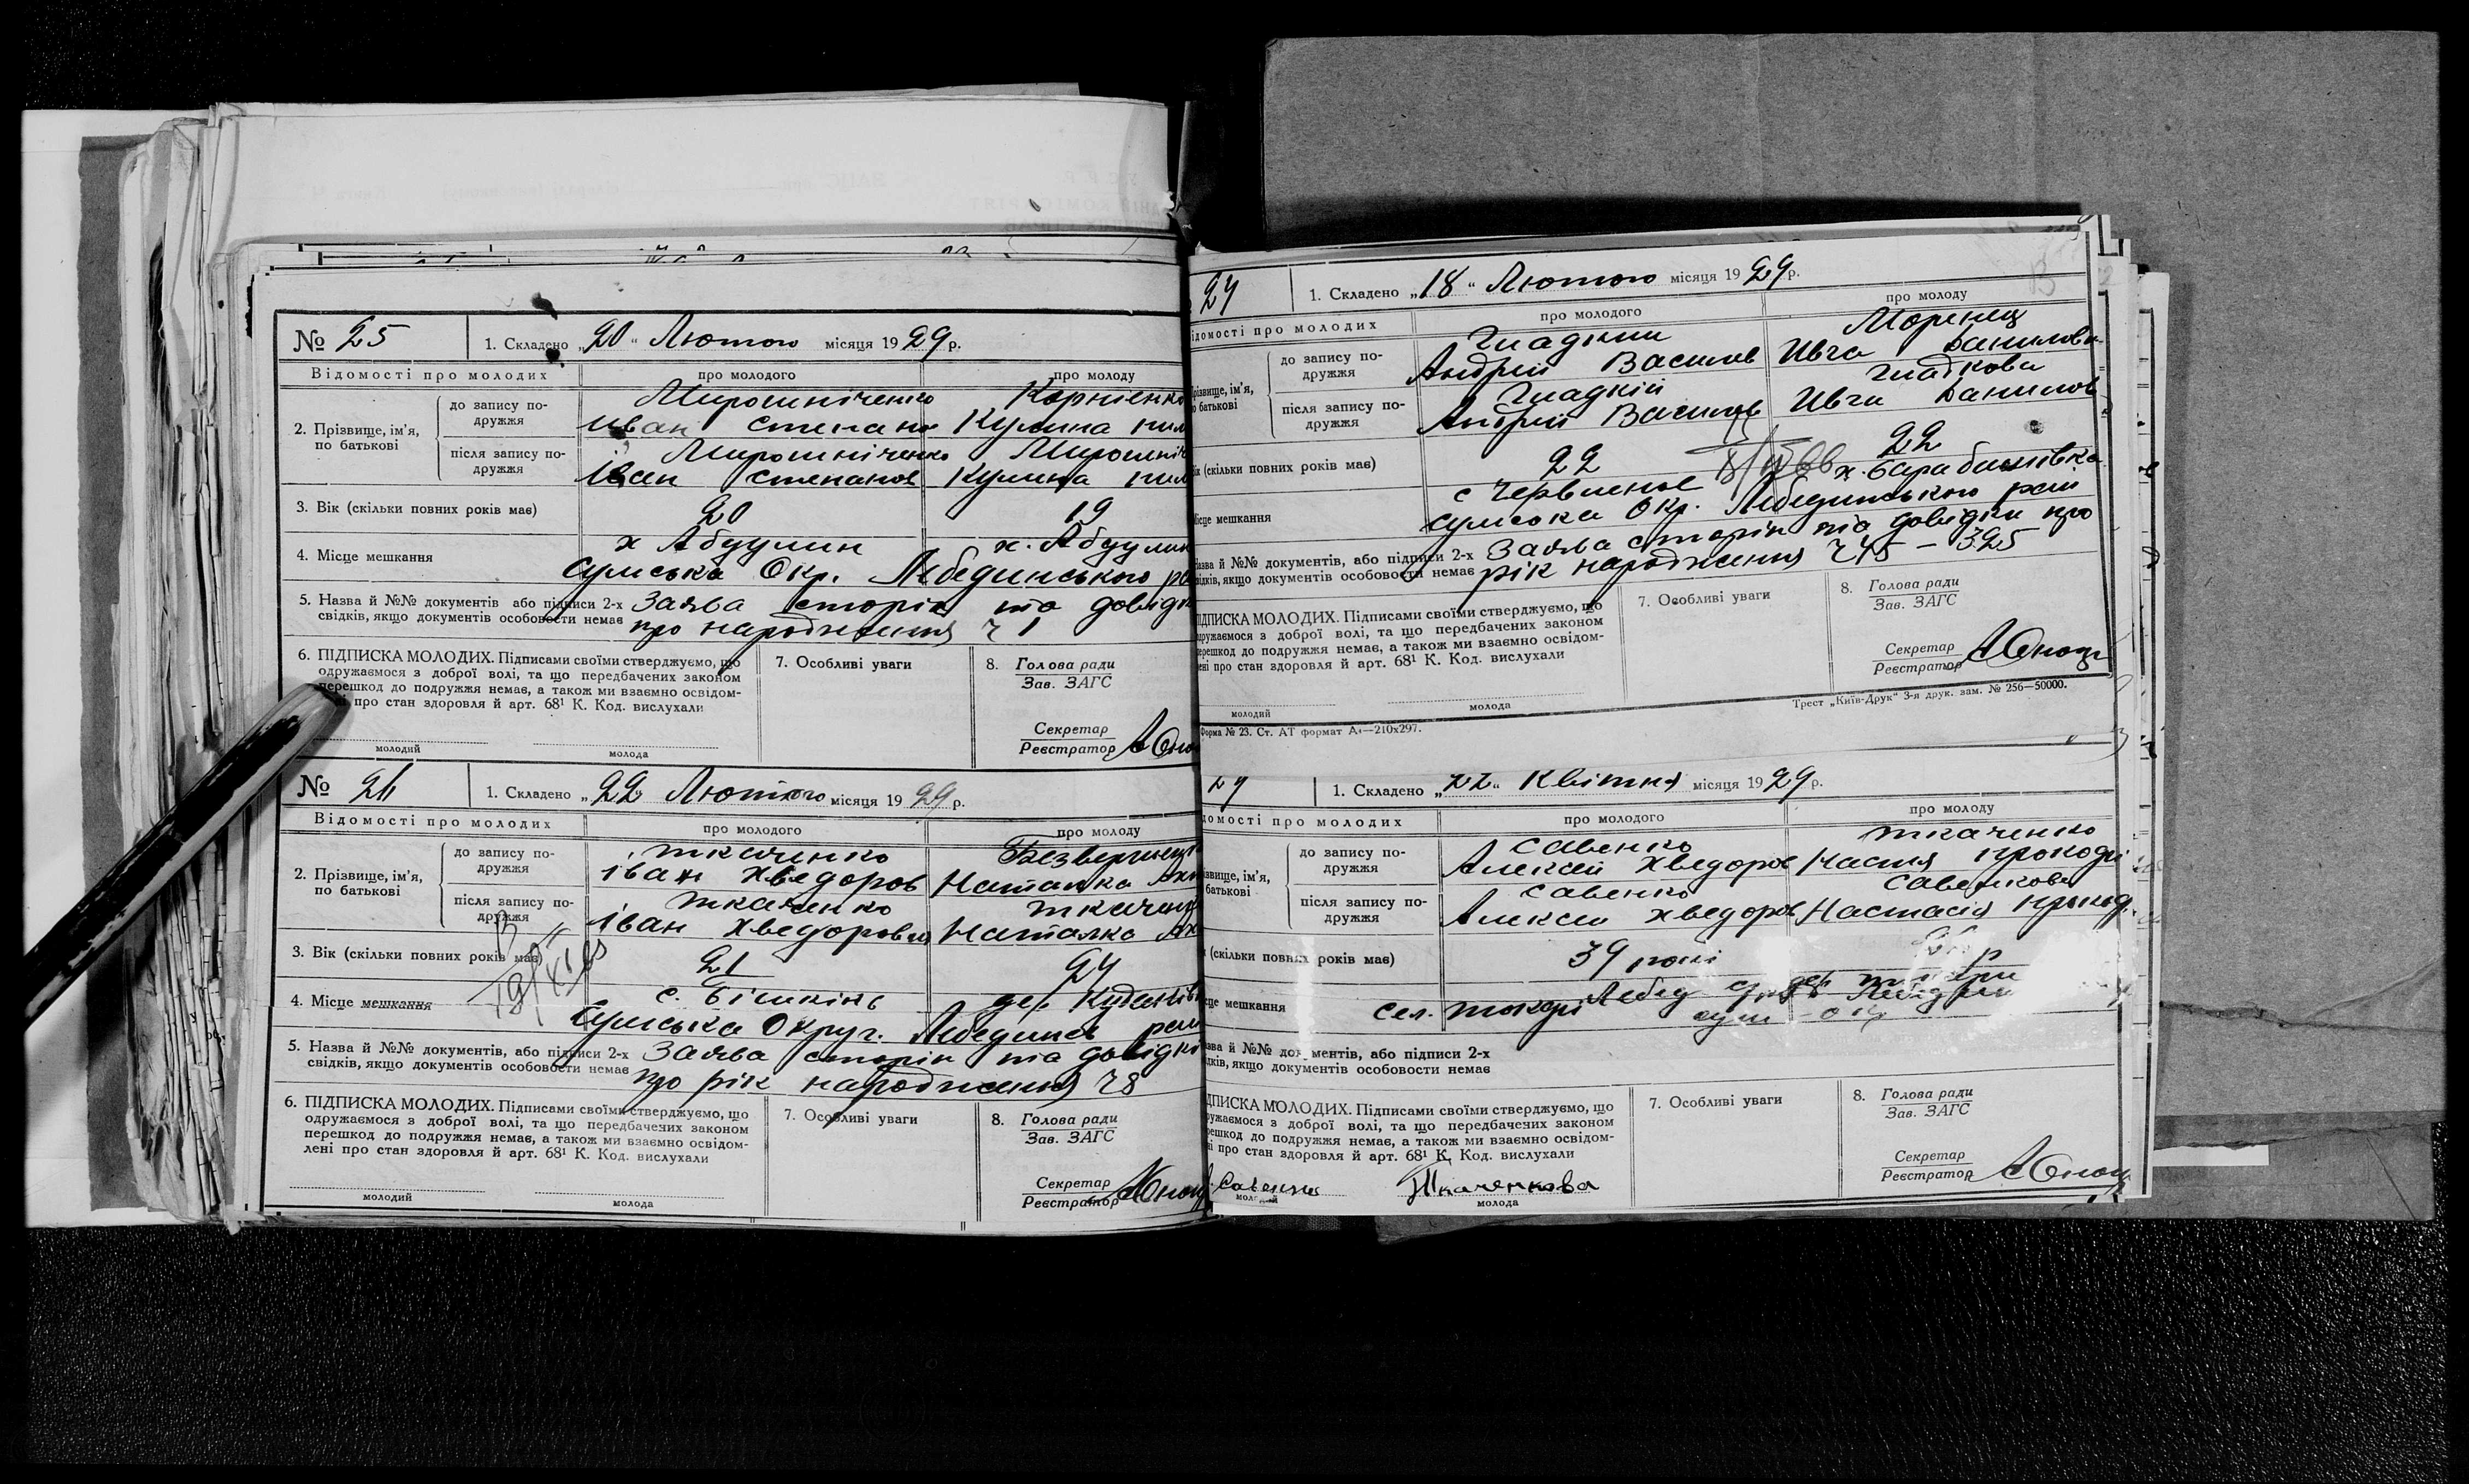 № 25
1. Складено „20“ Лютого місяця 1929 р.
Відомості про молодих
про молодого
про молоду
2. Прізвище, ім’я, по батькові
до запису по-
дружжя
Мирошніченко
Иван Степанов
Корніенко
Кулина
після запису по-
дружжя
Мирошніченко
Іван Степанов
Мирошніч
Кулина
3. Вік (скільки повних років має)
20
19
4. Місце мешкання
х Абдулин
х. Абдулин
Сумська Окр. Лебединського ра
5. Назва й №№ документів або підписи 2-х
свідків, якщо документів особовости немає
Заява сторін та довідк
про народження ч 1
6. ПІДПИСКА МОЛОДИХ. Підписами своїми стверджуємо, що
одружаємося з доброї волі, та що передбачених законом
перешкод до подружжя немає, а також ми взаємно освідом-
ні про стан здоровля й арт. 68¹ К. Код. вислухали
молодий
молода
7. Особливі уваги
8. Голова ради
Зав. ЗАГС
Секретар
Реєстратор
№ 26
1. Складено „22 Лютого місяця 1929 р.
Відомості про молодих
про молодого
про молоду
2. Прізвище, ім’я,
по батькові
до запису по-
дружжя
Ткаченко
Іван Хведоров
Наталка
після запису по-
дружжя
Ткаченко
Іван Хведоров
Ткаченк
Наталка
3. Вік (скільки повних років має)
21
24
4. Місце мешкання
с. Бішкінь
дер.
Сумська Округ. Лебединсь рай
5. Назва й №№ документів, або підписи 2-х
свідків, якщо документів особовости немає
Заява сторін та довідкі
про рік народження ч 8
6. ПІДПИСКА МОЛОДИХ. Підписами своїми стверджуємо, що
одружаємося з доброї волі, та що передбачених законом
перешкод до подружжя немає, а також ми взаємно освідом-
лені про стан здоровля й арт. 68¹ К. Код. вислухали
молодий
молода
7. Особливі уваги
8. Голова ради
Зав. ЗАГС
Секретар
Реєстратор
27
1. Складено „18“ Лютого місяця 1929 р.
ідомості про молодих
про молодого
про молоду
різвище, ім’я,
о батькові
до запису по-
дружжя
Гладкий
Андрій Василов
Моренец
Ивга Данилови
після запису по-
дружжя
Гладкій
Андрій Василов
Гладкова
Ивги Данилов
ік (скільки повних років має)
22
22
ісце мешкання
с Червленое
х. Барабашівка
Сумська Окр. Лебединського рай
азва й №№ документів, або підписи 2-х
ідків, якщо документів особовости немає
Заява сторін та довідки про
рік народження ч 45 – 325
ІДПИСКА МОЛОДИХ. Підписами своїми стверджуємо, що
дружаємося з доброї волі, та що передбачених законом
ерешкод до подружжя немає, а також ми взаємно освідом-
ені про стан здоровля й арт. 68¹ К. Код. вислухали
молодий
молода
7. Особливі уваги
8. Голова ради
Зав. ЗАГС
Секретар
Реєстратор
Трест „Київ-Друк“ 3-я друк. зам. № 256—50000.
Форма № 23. Ст. АТ формат А4—210х297.
27
1. Складено „22“ Квітня місяця 1929 р.
домості про молодих
про молодого
про молоду
ізвище, ім’я,
батькові
до запису по-
дружжя
Савенко
Алексей Хведоров
Ткаченко
Настя
після запису по-
дружжя
Савенко
Алексей Хведоров
Савенкова
Настасія
(скільки повних років має)
39
р
сце мешкання
сел. Токарі Лебед
зва й №№ документів, або підписи 2-х
ідків, якщо документів особовости немає
ДПИСКА МОЛОДИХ. Підписами своїми стверджуємо, що
ружаємося з доброї волі, та що передбачених законом
решкод до подружжя немає, а також ми взаємно освідом-
і про стан здоровля й арт. 68¹ К. Код. вислухали
Савенко
молодий
Ткаченкова
молода
7. Особливі уваги
8. Голова ради
Зав. ЗАГС
Секретар
Реєстратор